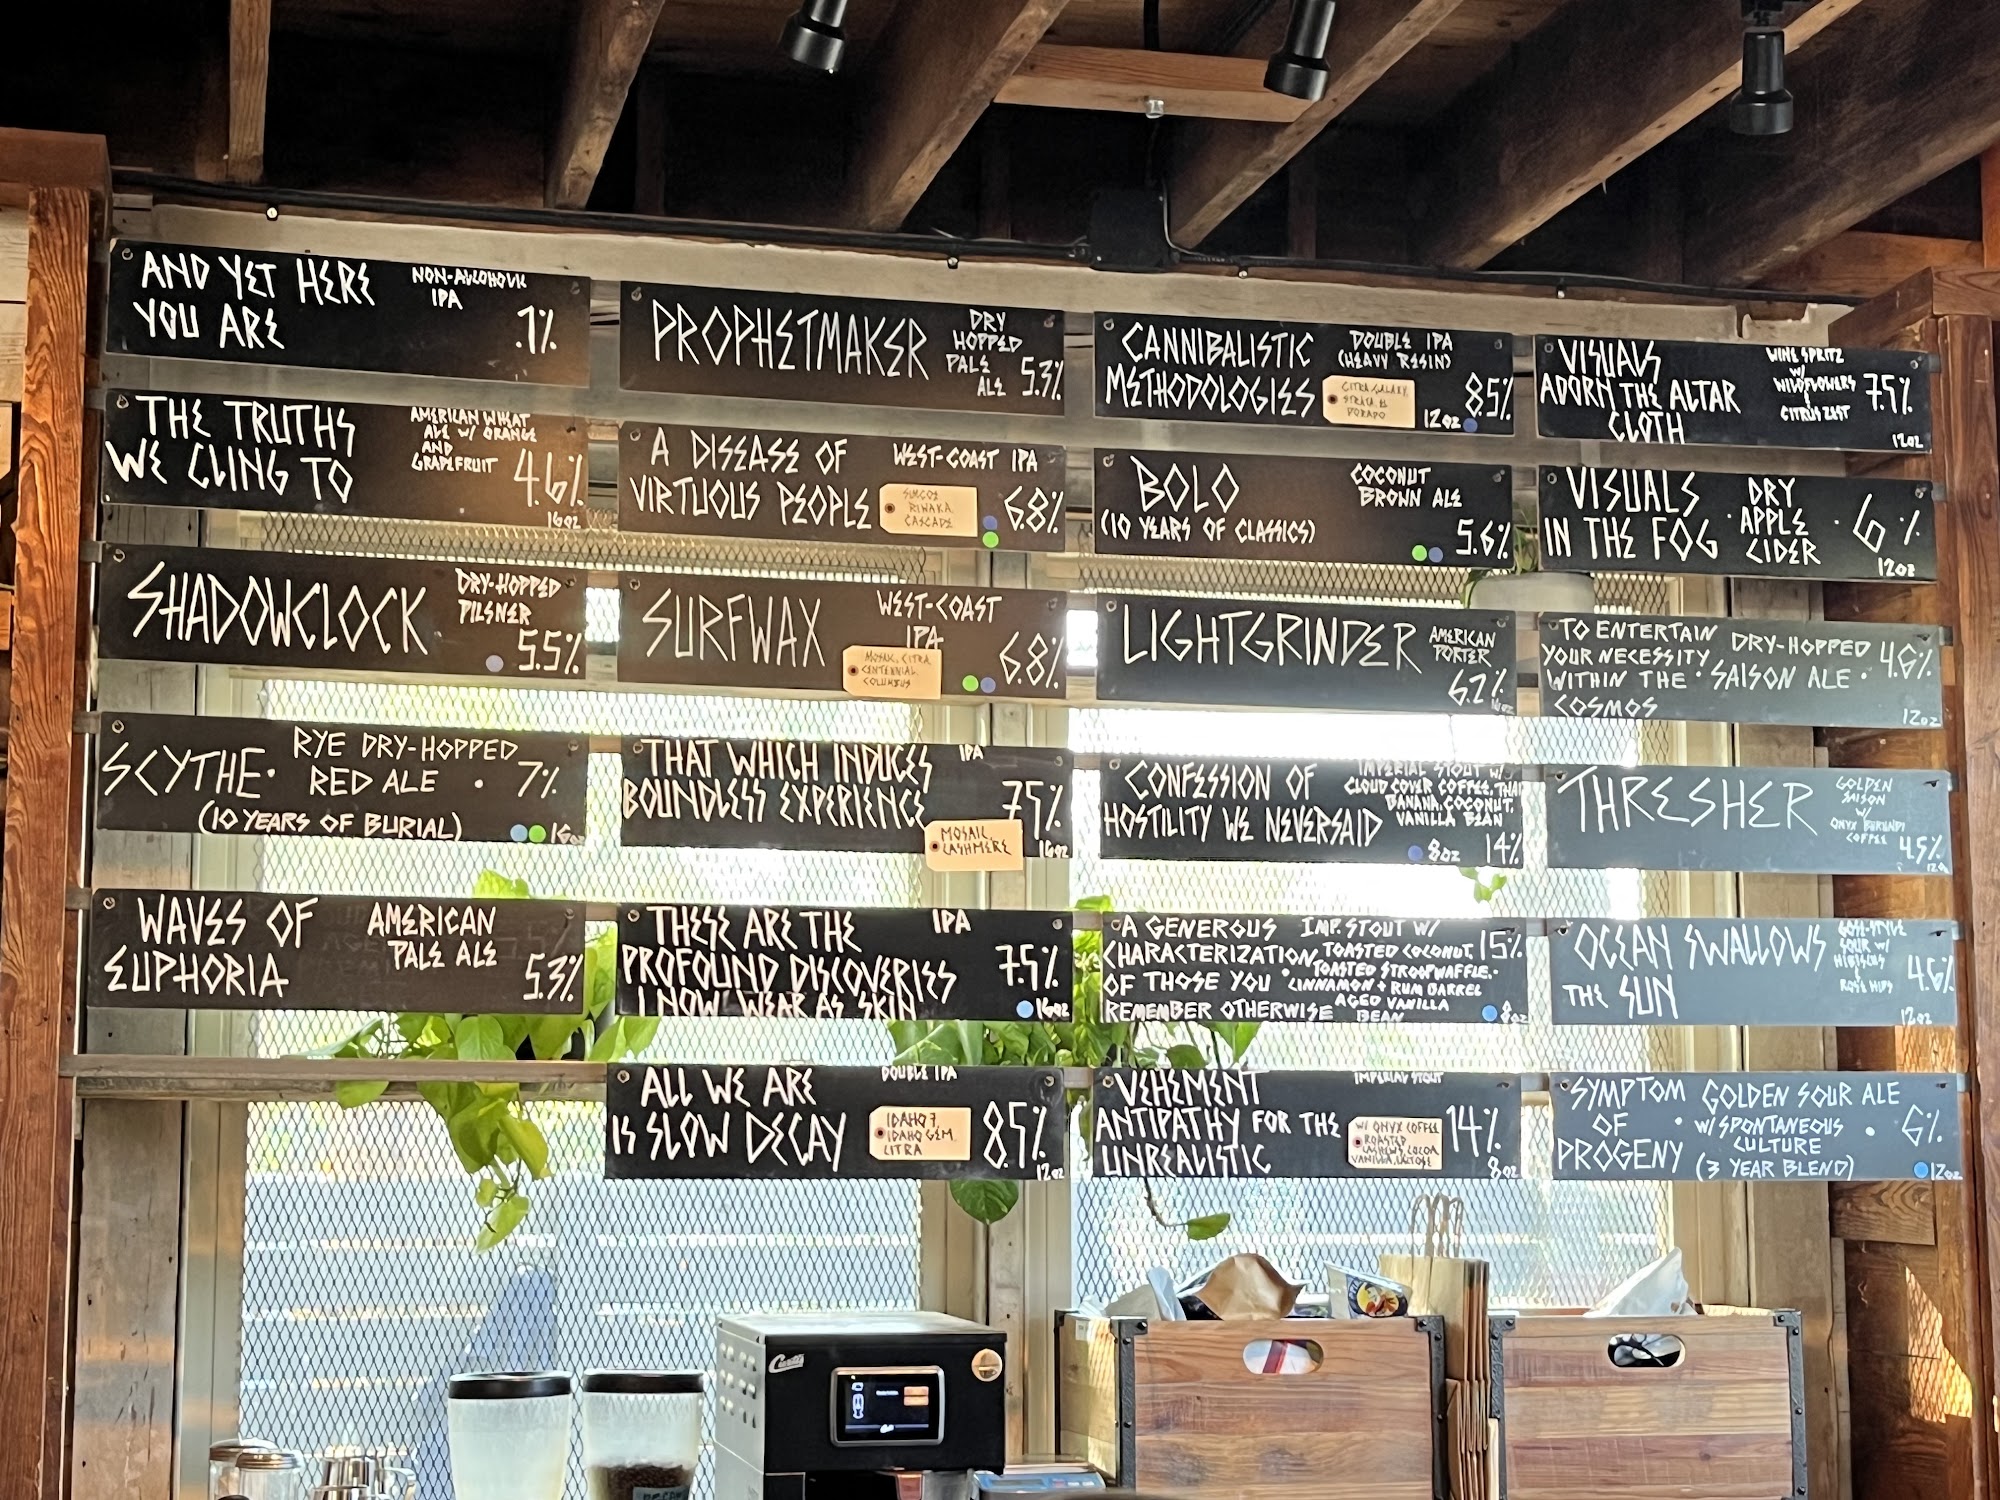 AND YET HERE
YOU ARE
NON-ALCOHOLIC
IPA
.1%
THE TRUTHS
WE CLING TO
AMERICAN WHEAT
ALE W/ ORANGE
AND
GRAPEFRUIT
4.6%
16oz
SHADOWCLOCK
DRY-HOPPED
PILSNER
5.5%
SCYTHE·
RYE DRY-HOPPED
RED ALE · 7%
(10 YEARS OF BURIAL)
16oz
WAVES OF
EUPHORIA
AMERICAN
PALE ALE
5.3%
PROPHETMAKER
DRY
HOPPED
PALE
ALE
5.3%
A DISEASE OF
VIRTUOUS PEOPLE
WEST-COAST IPA
SIMCOE
RIWAKA
CASCADE
6.8%
SURFWAX
WEST-COAST
IPA
MOSAIC, CITRA
CENTENNIAL
COLUMBUS
6.8%
THAT WHICH INDUCES
BOUNDLESS EXPERIENCE
IPA
7.5%
MOSAIC
CASHMERE
16oz
THESE ARE THE
PROFOUND DISCOVERIES
I NOW WEAR AS SKIN
IPA
7.5%
16oz
ALL WE ARE
IS SLOW DECAY
DOUBLE IPA
IDAHO 7
IDAHO GEM
CITRA
8.5%
12oz
CANNIBALISTIC
METHODOLOGIES
DOUBLE IPA
(HEAVY RESIN)
CITRA, GALAXY,
STRATA, EL
DORADO
8.5%
12oz
BOLO
(10 YEARS OF CLASSICS)
COCONUT
BROWN ALE
5.6%
LIGHTGRINDER
AMERICAN
PORTER
6.2%
16oz
CONFESSION OF
HOSTILITY WE NEVER SAID
IMPERIAL STOUT W/
CLOUD COVER COFFEE, THAI
BANANA, COCONUT,
VANILLA BEAN
8oz
14%
A GENEROUS
CHARACTERIZATION
OF THOSE YOU
REMEMBER OTHERWISE
IMP. STOUT W/
TOASTED COCONUT,
TOASTED STROOPWAFFLE,
CINNAMON + RUM BARREL
AGED VANILLA
BEAN
15%
8oz
VEHEMENT
ANTIPATHY FOR THE
UNREALISTIC
IMPERIAL STOUT
W/ ONYX COFFEE
ROASTED
CASHEWS, COCOA
VANILLA, LACTOSE
14%
8oz
VISUALS
ADORN THE ALTAR
CLOTH
WINE SPRITZ
W/
WILDFLOWERS
&
CITRUS ZEST
7.5%
12oz
VISUALS
IN THE FOG
· DRY
APPLE
CIDER ·
6%
12oz
TO ENTERTAIN
YOUR NECESSITY
WITHIN THE ·
COSMOS
DRY-HOPPED
SAISON ALE ·
4.6%
12oz
THRESHER
GOLDEN
SAISON
W/
ONYX BURUNDI
COFFEE
4.5%
12oz
OCEAN SWALLOWS
THE SUN
GOSE-STYLE
SOUR W/
HIBISCUS
&
ROSE HIPS
4.6%
12oz
SYMPTOM
OF
PROGENY
GOLDEN SOUR ALE
· W/ SPONTANEOUS ·
CULTURE
(3 YEAR BLEND)
6%
12oz
Curtis